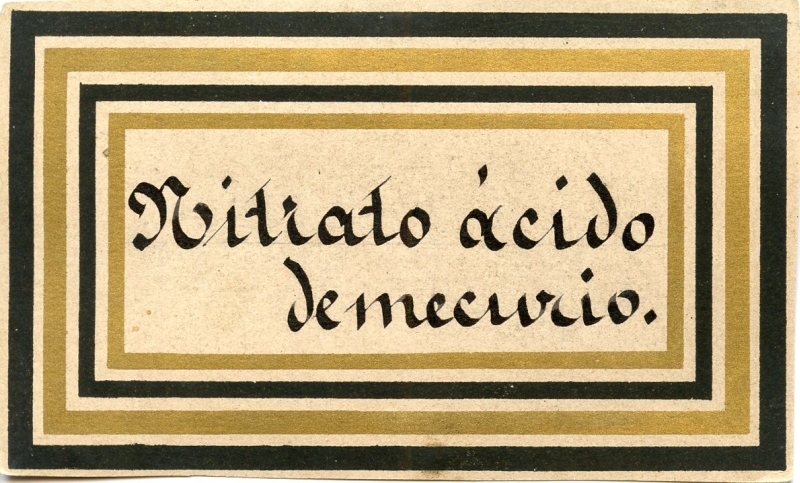 Nitrato ácido
demecurio.